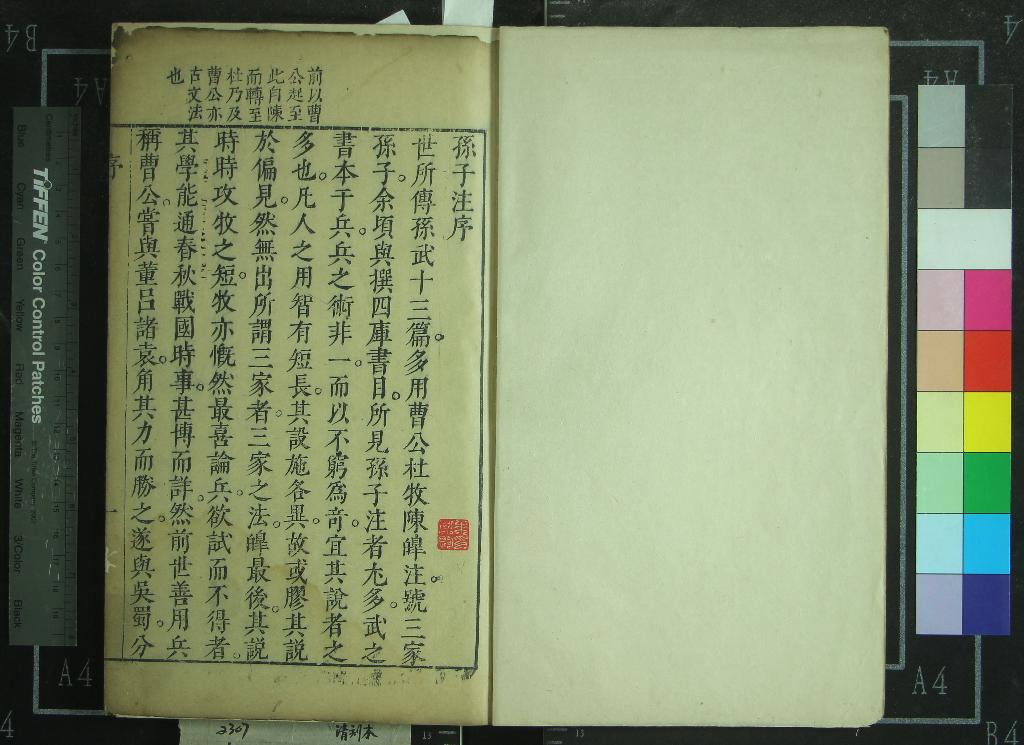 前以曹
公起至
此自陳
而轉至
杜乃及
曹公亦
古文法
也
孫子注序
世所傳孫武十三篇。多用曹公杜牧陳皥注。號三家
孫子。余頃與撰四庫書目。所見孫子注者尤多。武之
書本于兵。兵之術非一。而以不窮為奇。宜其說者之
多也。凡人之用智有短長。其設施各異。故或膠其說
於偏見。然無出所謂三家者。三家之法。皥最後。其說
時時攻牧之短。牧亦慨然最喜論兵。欲試而不得者。
其學能通春秋戰國時事。甚博而詳。然前世善用兵
稱曹公。嘗與董呂諸袁。角其力而勝之。遂與吳蜀。分
序
一
TIFFEN Color Control Patches
Centimetres
Blue
Cyan
Green
Yellow
Red
Magenta
White
3/Color
Black
B4
A4
A4
A4
A4
B4
4
4
2307
清刻本
13
13